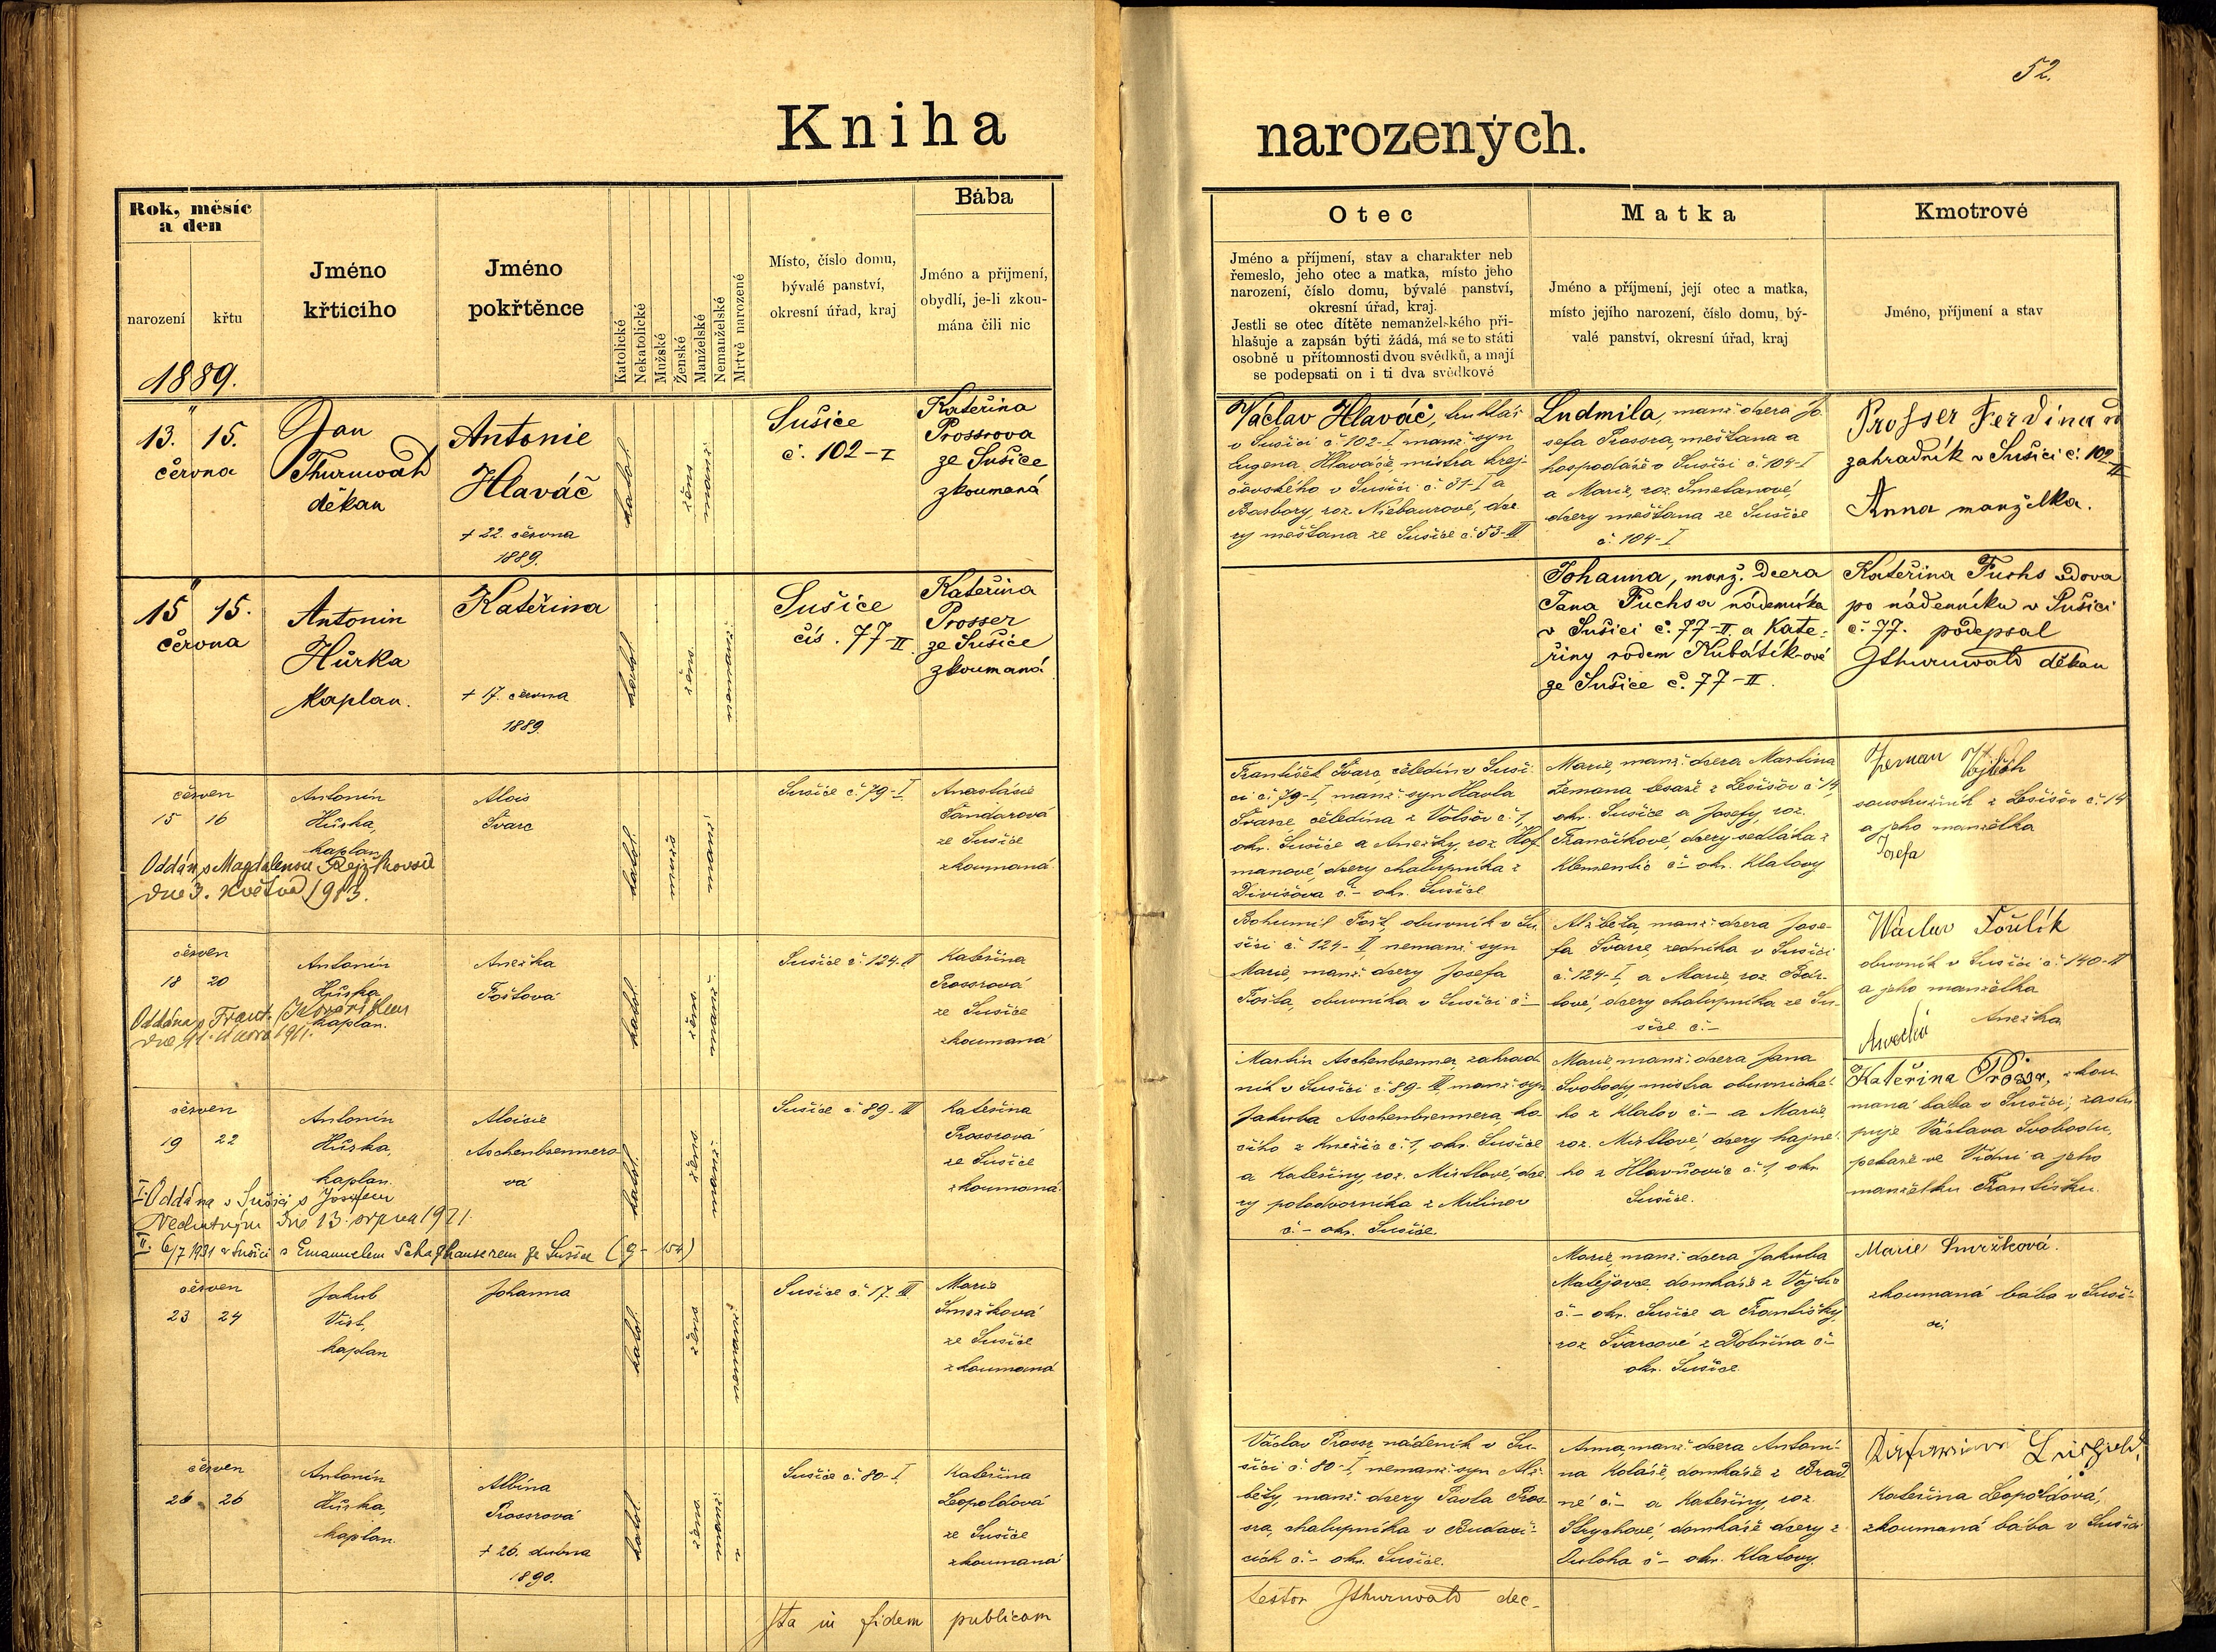 52.
Kniha narozených.
Rok, měsíc
a den
narození
křtu
1889.
Jméno
křticiho
Jméno
pokřtěnce
Katolické
Nekatolické
Mužské
Ženské
Manželské
Nemanželské
Mrtvě narozené
Místo, číslo domu,
bývalé panství,
okresní úřad, kraj
Bába
Jméno a přijmení,
obydlí, je-li zkou-
mána čili nic
Otec
Jméno a příjmení, stav a charakter neb
řemeslo, jeho otec a matka, místo jeho
narození, číslo domu, bývalé panství,
okresní úřad, kraj.
Jestli se otec dítěte nemanželského při-
hlašuje a zapsán býti žádá, má se to státi
osobně u přítomnosti dvou svědků, a mají
se podepsati on i ti dva svědkové
Matka
Jméno a příjmení, její otec a matka,
místo jejího narození, číslo domu, bý-
valé panství, okresní úřad, kraj
Kmotrové
Jméno, příjmení a stav
13. 15.
června
Jan
Thurnwald
děkan
Antonie
Hlaváč
+ 22. června
1889.
katol.
žens.
manž.
Sušice
č. 102-I
Kateřina
Prossrova
ze Sušice
zkoumaná
Václav Hlaváč, truhlář
v Sušici č. 102-I, manž. syn
Eugena Hlaváče, mistra krej-
čovského v Sušici č. 31-I a
Barbory, roz. Niebaurové, dce
ry měšťana ze Sušice č. 53-III
Ludmila, manž. dcera Jo
sefa Prossra, měšťana a
hospodáře v Sušici č. 104-I
a Marie, roz. Smetanové,
dcery měšťana ze Sušice
č. 104-I
Prosser Ferdinand
zahradník v Sušici č. 102
II
Anna manželka.
15 15.
června
Antonin
Hůrka
Kaplan.
Kateřina
+ 17. června
1889.
katol.
žens.
nemanž.
Sušice
čís. 77-II.
Kateřina
Prosser
ze Sušice
zkoumaná
Johanna, manž. dcera
Jana Fuchsa nádenníka
v Sušici č. 77-II. a Kate-
řiny rodem Kubátíkové
ze Sušice č. 77-II.
Kateřina Fuchs vdova
po nádenníku v Sušici
č. 77. podepsal
JThurnwald děkan
červen
15 16
Antonín
Hůrka,
kaplan
Alois
Švarc
Oddán s Magdalenou Rejžkovou
dne 3. května 1913.
katol.
mužs.
manž.
Sušice č. 79-I
Anastásie
Tandarová
ze Sušice
zkoumaná.
František Švarc, čeledín v Suši-
ci č. 79-I, manž. syn Havla
Švarce čeledína z Volšov č. 1,
okr. Sušice a Anežky, roz. Hof
manové, dcery chalupníka z
Divišova č.- okr. Sušice
Marie, manž. dcera Martina
Zemana tesaře z Lešišov č. 14,
okr. Sušice a Josefy, roz.
Frančíkové, dcery sedláka z
Klementic č.- okr. Klatovy
Zeman Vojtěch
soustružník z Lešišov č. 14
a jeho manželka
Josefa
červen
18 20
Antonín
Hůrka
kaplan.
Anežka
Toštová
katol.
žens.
manž.
Sušice č. 124-II
Kateřina
Prossrová
ze Sušice
zkoumaná
Bohumil Tošt, obuvník v Su-
šici č. 124-II, nemanž. syn
Marie, manž. dcery Josefa
Tošta, obuvníka v Sušici č.-
Alžběta, manž. dcera Jose-
fa Švarce, zedníka v Sušici
č. 124-I, a Marie, roz. Bár-
tové, dcery chalupníka ze Su-
šice č.-
Václav Toušlík
obuvník v Sušici č. 140-II
a jeho manželka
Anežka
červen
19 22
Antonín
Hůrka,
kaplan.
Aloisie
Aschenbrennero-
vá
I. Oddána v Sušici s Josefem
dne 13. srpna 1921.
II. 6/7 1931 v Sušici s Emanuelem Schaffhauserem ze Sušice (9-154)
katol.
žens.
manž.
Sušice č. 89-III
Kateřina
Prossrová
ze Sušice
zkoumaná
Martin Aschenbrenner, zahrad
ník v Sušici č. 89-III, manž. syn
Jakuba Aschenbrennera, ko-
čího z Kněžic č. 1, okr. Sušice
a Kateřiny, roz. Mirtlové, dce
ry polodvorníka z Milínov
č.- okr. Sušice.
Marie, manž. dcera Jana
Svobody mistra obuvnické-
ho z Klatov č.- a Marie,
roz. Mirtlové, dcery hajné-
ho z Hlavňovic č. 1, okr.
Sušice.
Kateřina Prossr, zkou
maná bába v Sušici, zastu
puje Václava Svobodu,
pekaře ve Vídni a jeho
manželku Františku.
červen
23 24
Jakub
kaplan
Johanna
katol.
žens.
nemanž.
Sušice č. 17. III
Marie
Smržková
ze Sušice
zkoumaná
Marie, manž. dcera Jakuba
Matějovce, domkáře z Vojtic
č.- okr. Sušice a Františky,
roz. Švarcové z Dobřína č.-
okr. Sušice.
Marie Smržková.
zkoumaná bába v Suši-
ci.
červen
26 26
Antonín
Hůrka,
kaplan.
Albína
Prossrová
+ 26. dubna
1890.
katol.
žens.
manž.
Sušice č. 80-I
Kateřina
Leopoldová
ze Sušice
zkoumaná
Václav Prossr, nádeník v Su-
šici č. 80-I, nemanž. syn Alž-
běty, manž. dcery Pavla Pros-
sra, chalupníka v Budasi-
cích č.- okr. Sušice.
Anna, manž. dcera Antoní-
na Koláře, domkáře z Brad
né č.- a Kateřiny, roz.
Strychové, domkáře dcery z
č.- okr. Klatovy.
Kateřina Leopoldová,
zkoumaná bába v Sušici
Ita in fidem publicam
testor JThurnwald dec-